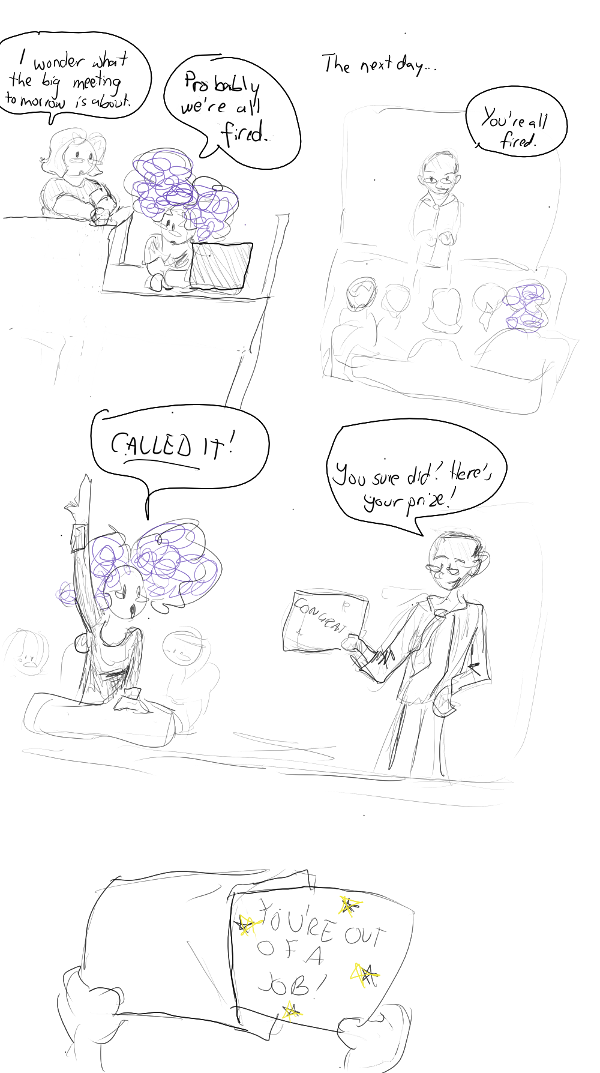 I wonder what
the big meeting
tomorrow is about.
Probably
we're all
fired.
The next day...
You're all
fired.
CALLED IT!
You sure did! Here's
your prize!
CONGRAT
YOU'RE OUT
OF A
JOB!